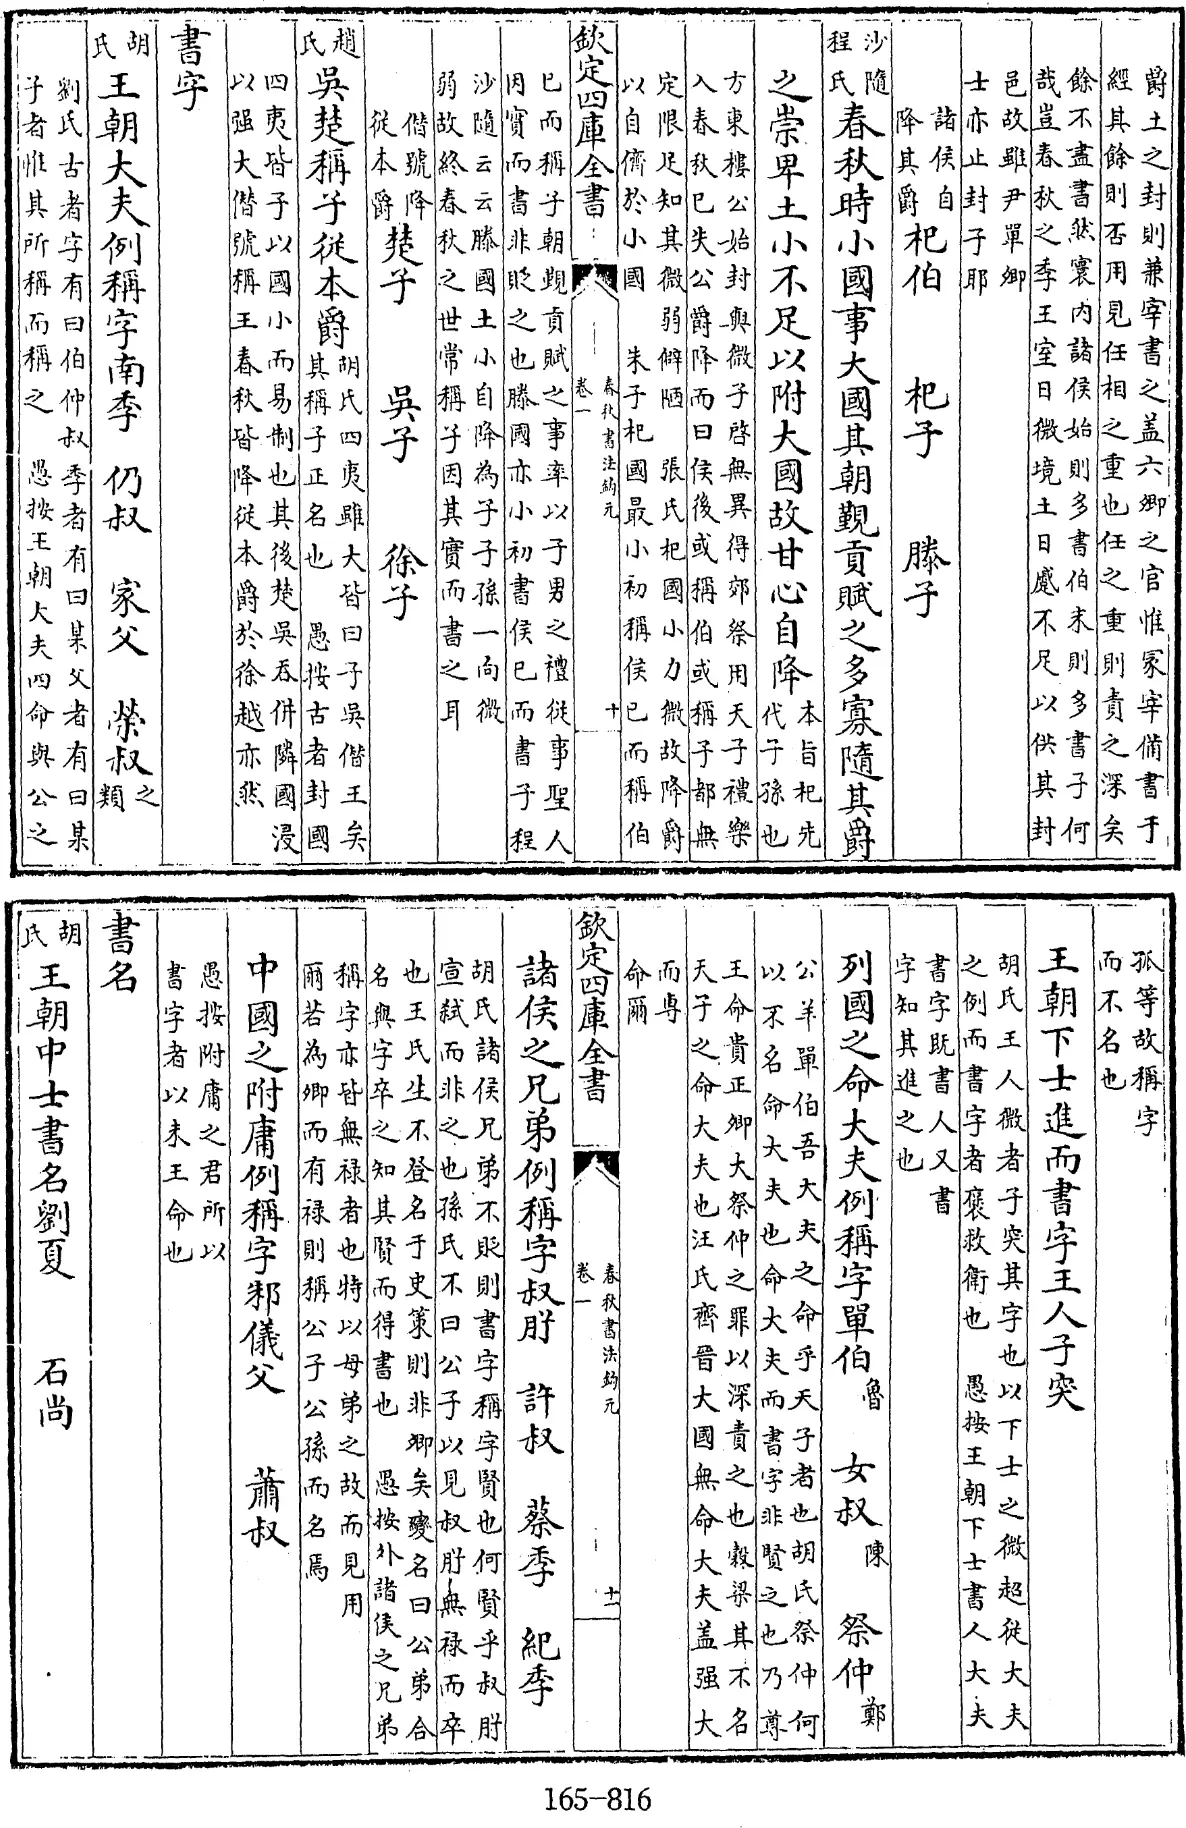 爵土之封則兼宰書之盖六卿之官惟冢宰備書于
經其餘則否用見任相之重也任之重則責之深矣
餘不盡書然寰内諸侯始則多書伯末則多書子何
哉豈春秋之季王室日微境土日蹙不足以供其封
邑故雖尹單卿
士亦止封子耶
諸侯自降其爵 杞伯 杞子 滕子
沙隨程氏 春秋時小國事大國其朝覲貢賦之多寡隨其爵
之崇卑土小不足以附大國故甘心自降 本旨杞先代子孫也
方東樓公始封與微子啓無異得郊祭用天子禮樂
入春秋已失公爵降而曰侯後或稱伯或稱子都無
定限足知其微弱僻陋 張氏杞國小力微故降爵
以自儕於小國 朱子杞國最小初稱侯已而稱伯
欽定四庫全書 春秋書法鈎元 卷一 十
已而稱子朝覲貢賦之事率以子男之禮從事聖人
因實而書非貶之也滕國亦小初書侯已而書子程
沙隨云云滕國土小自降為子子孫一向微
弱故終春秋之世常稱子因其實而書之耳
僭號降從本爵 楚子 吳子 徐子
趙氏 吳楚稱子從本爵 胡氏四夷雖大皆曰子吳僭王矣其稱子正名也 愚按古者封國
四夷皆子以國小而易制也其後楚吳吞併隣國浸
以强大僭號稱王春秋皆降從本爵於徐越亦然
書字
胡氏 王朝大夫例稱字南季 仍叔 家父 榮叔之類
劉氏古者字有曰伯仲叔季者有曰某父者有曰某
子者惟其所稱而稱之 愚按王朝大夫四命與公之
孤等故稱字
而不名也
王朝下士進而書字王人子突
胡氏王人微者子突其字也以下士之微超從大夫
之例而書字者褒救衛也 愚按王朝下士書人大夫
書字既書人又書
字知其進之也
列國之命大夫例稱字單伯魯 女叔陳 祭仲鄭
公羊單伯吾大夫之命乎天子者也胡氏祭仲何
以不名命大夫也命大夫而書字非賢之也乃尊
王命貴正卿大祭仲之罪以深責之也榖梁其不名
天子之命大夫也汪氏齊晉大國無命大夫盖强大
而専
命爾
欽定四庫全書 春秋書法鈎元 卷一 十一
諸侯之兄弟例稱字叔肸 許叔 蔡季 紀季
胡氏諸侯兄弟不貶則書字稱字賢也何賢乎叔肸
宣弑而非之也孫氏不曰公子以見叔肸無祿而卒
也王氏生不登名于史策則非卿矣變名曰公弟合
名與字卒之知其賢而得書也 愚按外諸侯之兄弟
稱字亦皆無祿者也特以母弟之故而見用
爾若為卿而有祿則稱公子公孫而名焉
中國之附庸例稱字邾儀父 蕭叔
愚按附庸之君所以
書字者以未王命也
書名
胡氏 王朝中士書名劉夏 石尚
165-816